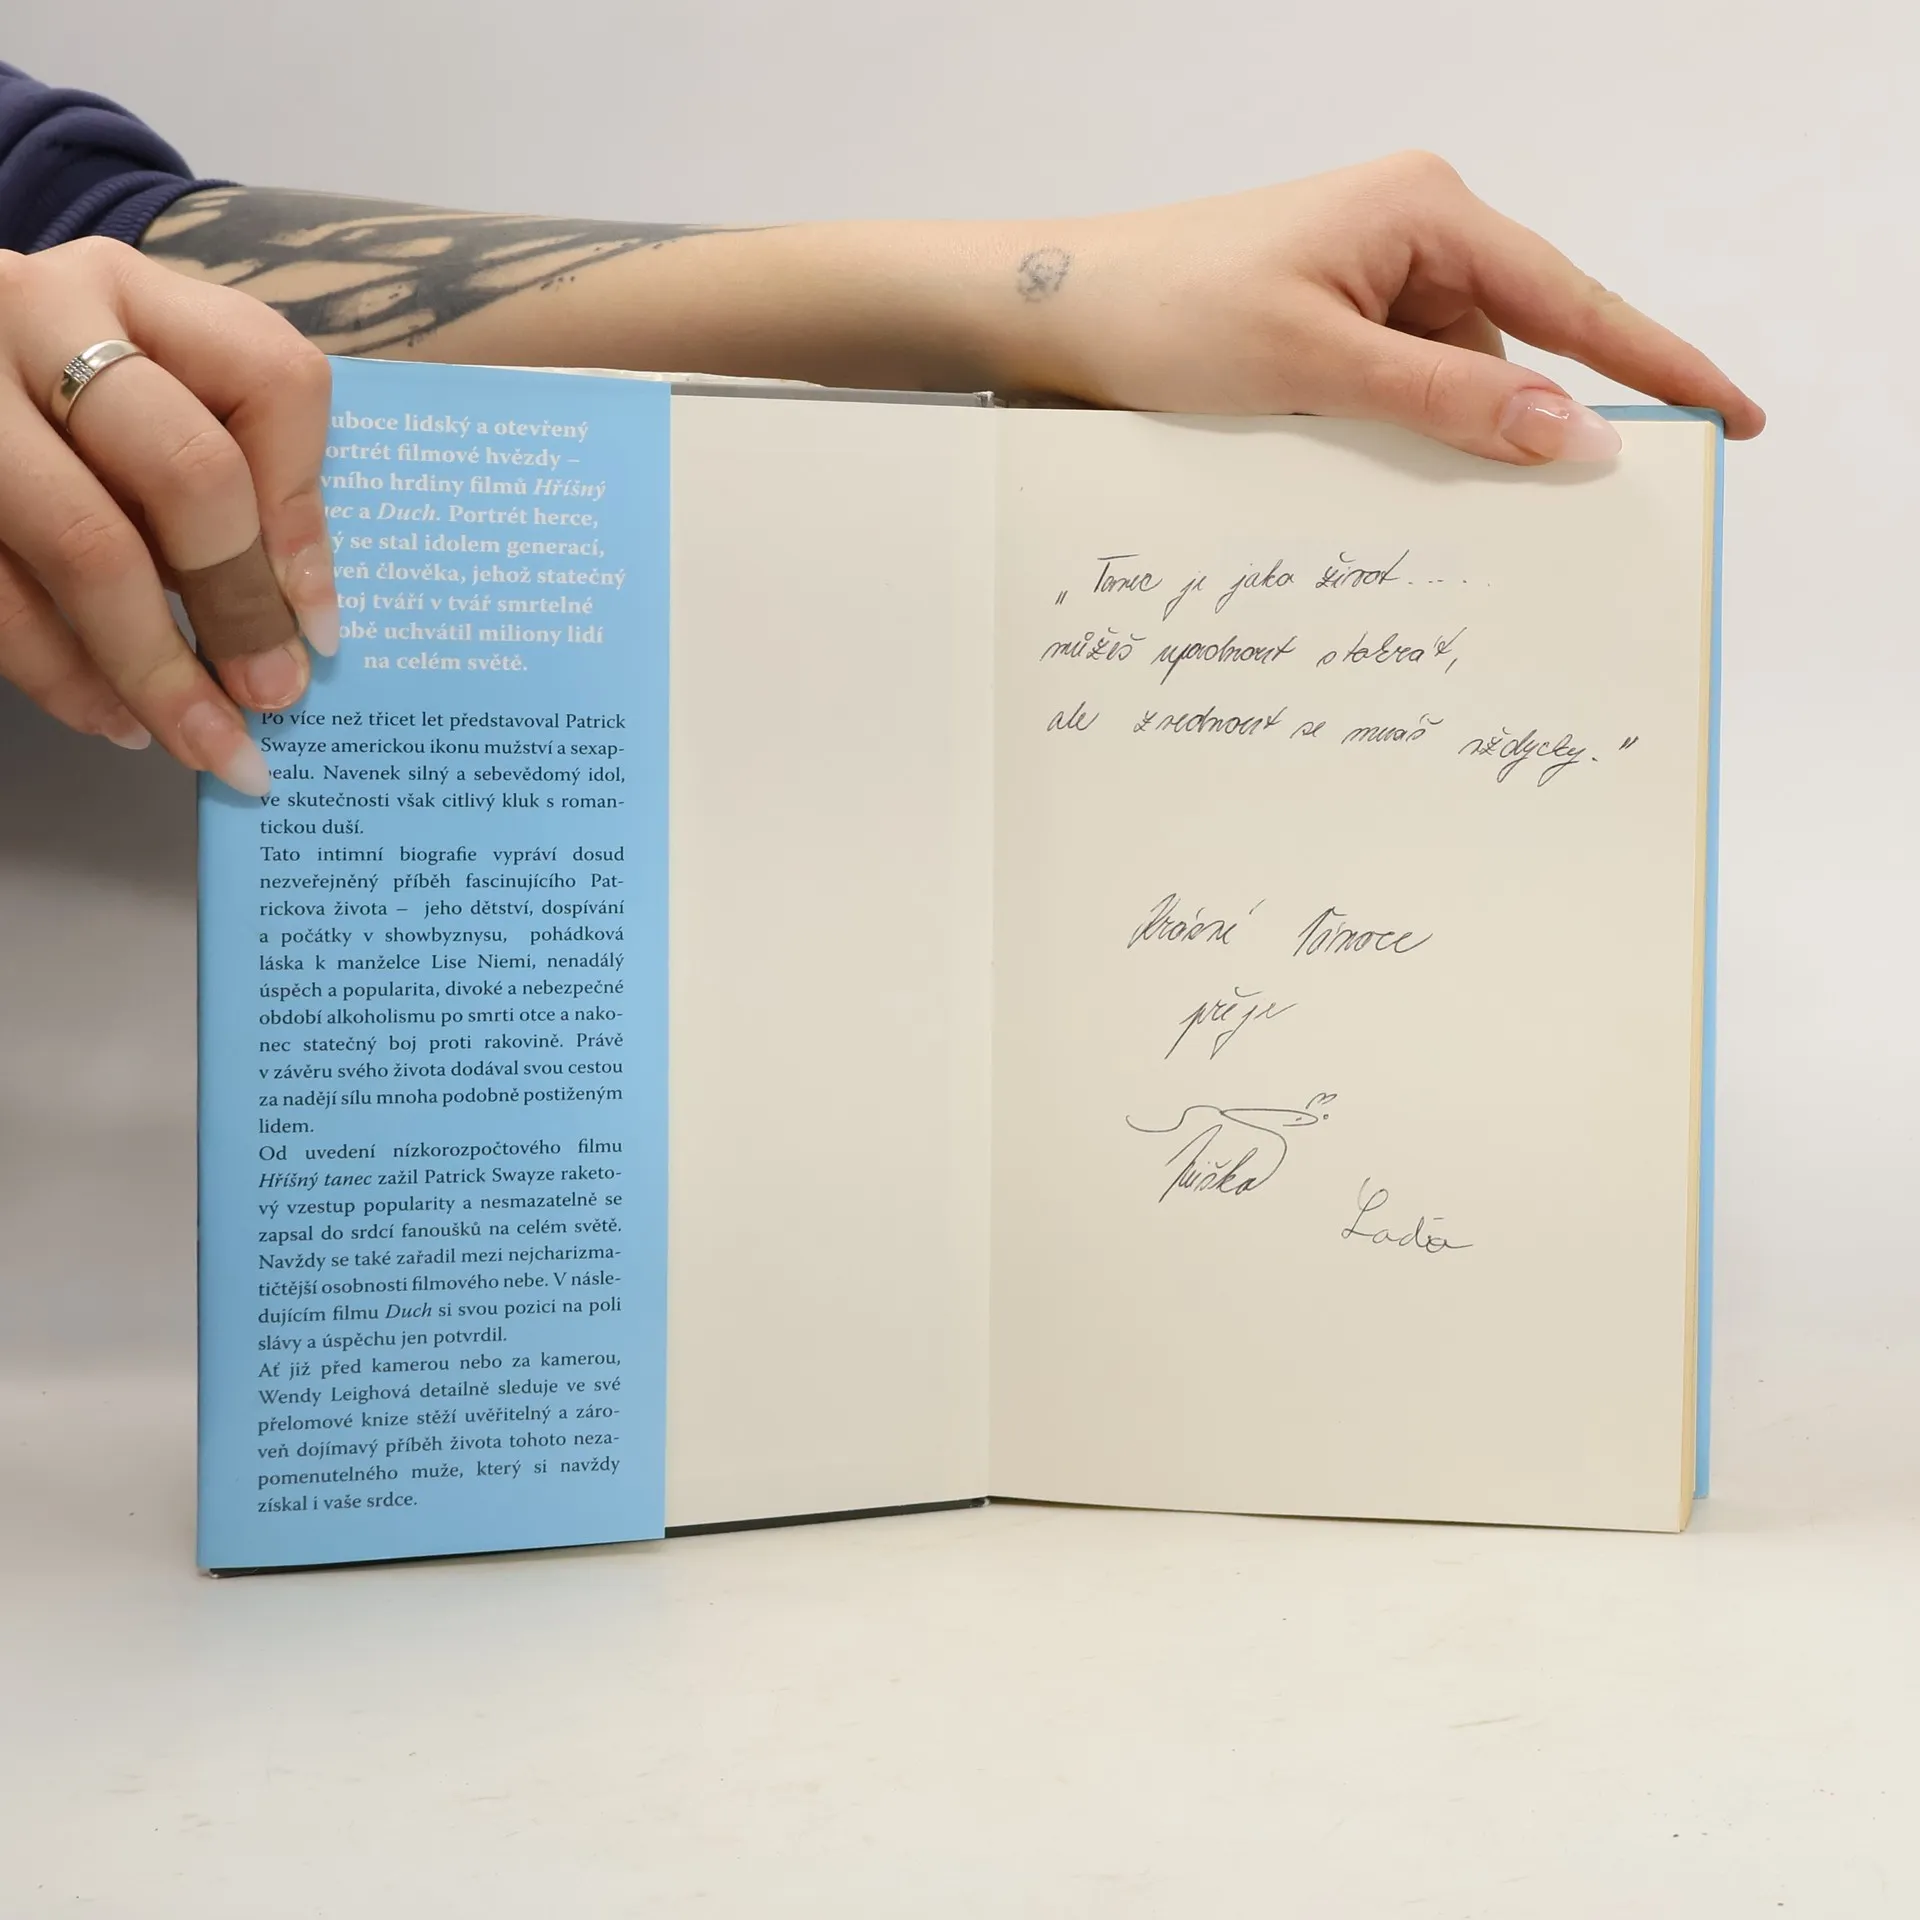 uboce lidský a otevřený
ortrét filmové hvězdy –
vního hrdiny filmů Hříšný
nec a Duch. Portrét herce,
ý se stal idolem generací,
veň člověka, jehož statečný
toj tváří v tvář smrtelné
obě uchvátil miliony lidí
na celém světě.
Po více než třicet let představoval Patrick
Swayze americkou ikonu mužství a sexap-
pealu. Navenek silný a sebevědomý idol,
ve skutečnosti však citlivý kluk s roman-
tickou duší.
Tato intimní biografie vypráví dosud
nezveřejněný příběh fascinujícího Pat-
rickova života – jeho dětství, dospívání
a počátky v showbyznysu, pohádková
láska k manželce Lise Niemi, nenadálý
úspěch a popularita, divoké a nebezpečné
období alkoholismu po smrti otce a nako-
nec statečný boj proti rakovině. Právě
v závěru svého života dodával svou cestou
za nadějí sílu mnoha podobně postiženým
lidem.
Od uvedení nízkorozpočtového filmu
Hříšný tanec zažil Patrick Swayze raketo-
vý vzestup popularity a nesmazatelně se
zapsal do srdcí fanoušků na celém světě.
Navždy se také zařadil mezi nejcharizma-
tičtější osobnosti filmového nebe. V násle-
dujícím filmu Duch si svou pozici na poli
slávy a úspěchu jen potvrdil.
Ať již před kamerou nebo za kamerou,
Wendy Leighová detailně sleduje ve své
přelomové knize stěží uvěřitelný a záro-
veň dojímavý příběh života tohoto neza-
pomenutelného muže, který si navždy
získal i vaše srdce.
„Tanec je jako život.....
můžeš upadnout stokrát,
ale zvednout se musíš vždycky."
Krásné Vánoce
přeje
Laďa